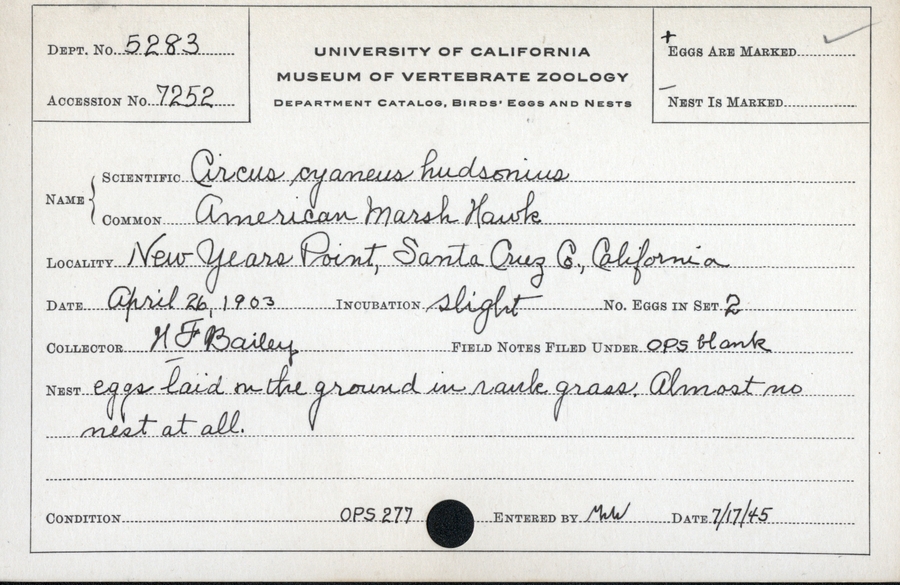 DEPT. No. 5283
ACCESSION No. 7252
UNIVERSITY OF CALIFORNIA
MUSEUM OF VERTEBRATE ZOOLOGY
DEPARTMENT CATALOG, BIRDS' EGGS AND NESTS
+ EGGS ARE MARKED ✓
– NEST IS MARKED
NAME { SCIENTIFIC Circus cyaneus hudsonius
COMMON American Marsh Hawk
LOCALITY New Years Point, Santa Cruz Co., California
DATE April 26, 1903 INCUBATION slight NO. EGGS IN SET 2
COLLECTOR H F Bailey FIELD NOTES FILED UNDER OPS blank
NEST eggs laid on the ground in rank grass. Almost no
nest at all.
CONDITION OPS 277 ENTERED BY DATE 7/17/45